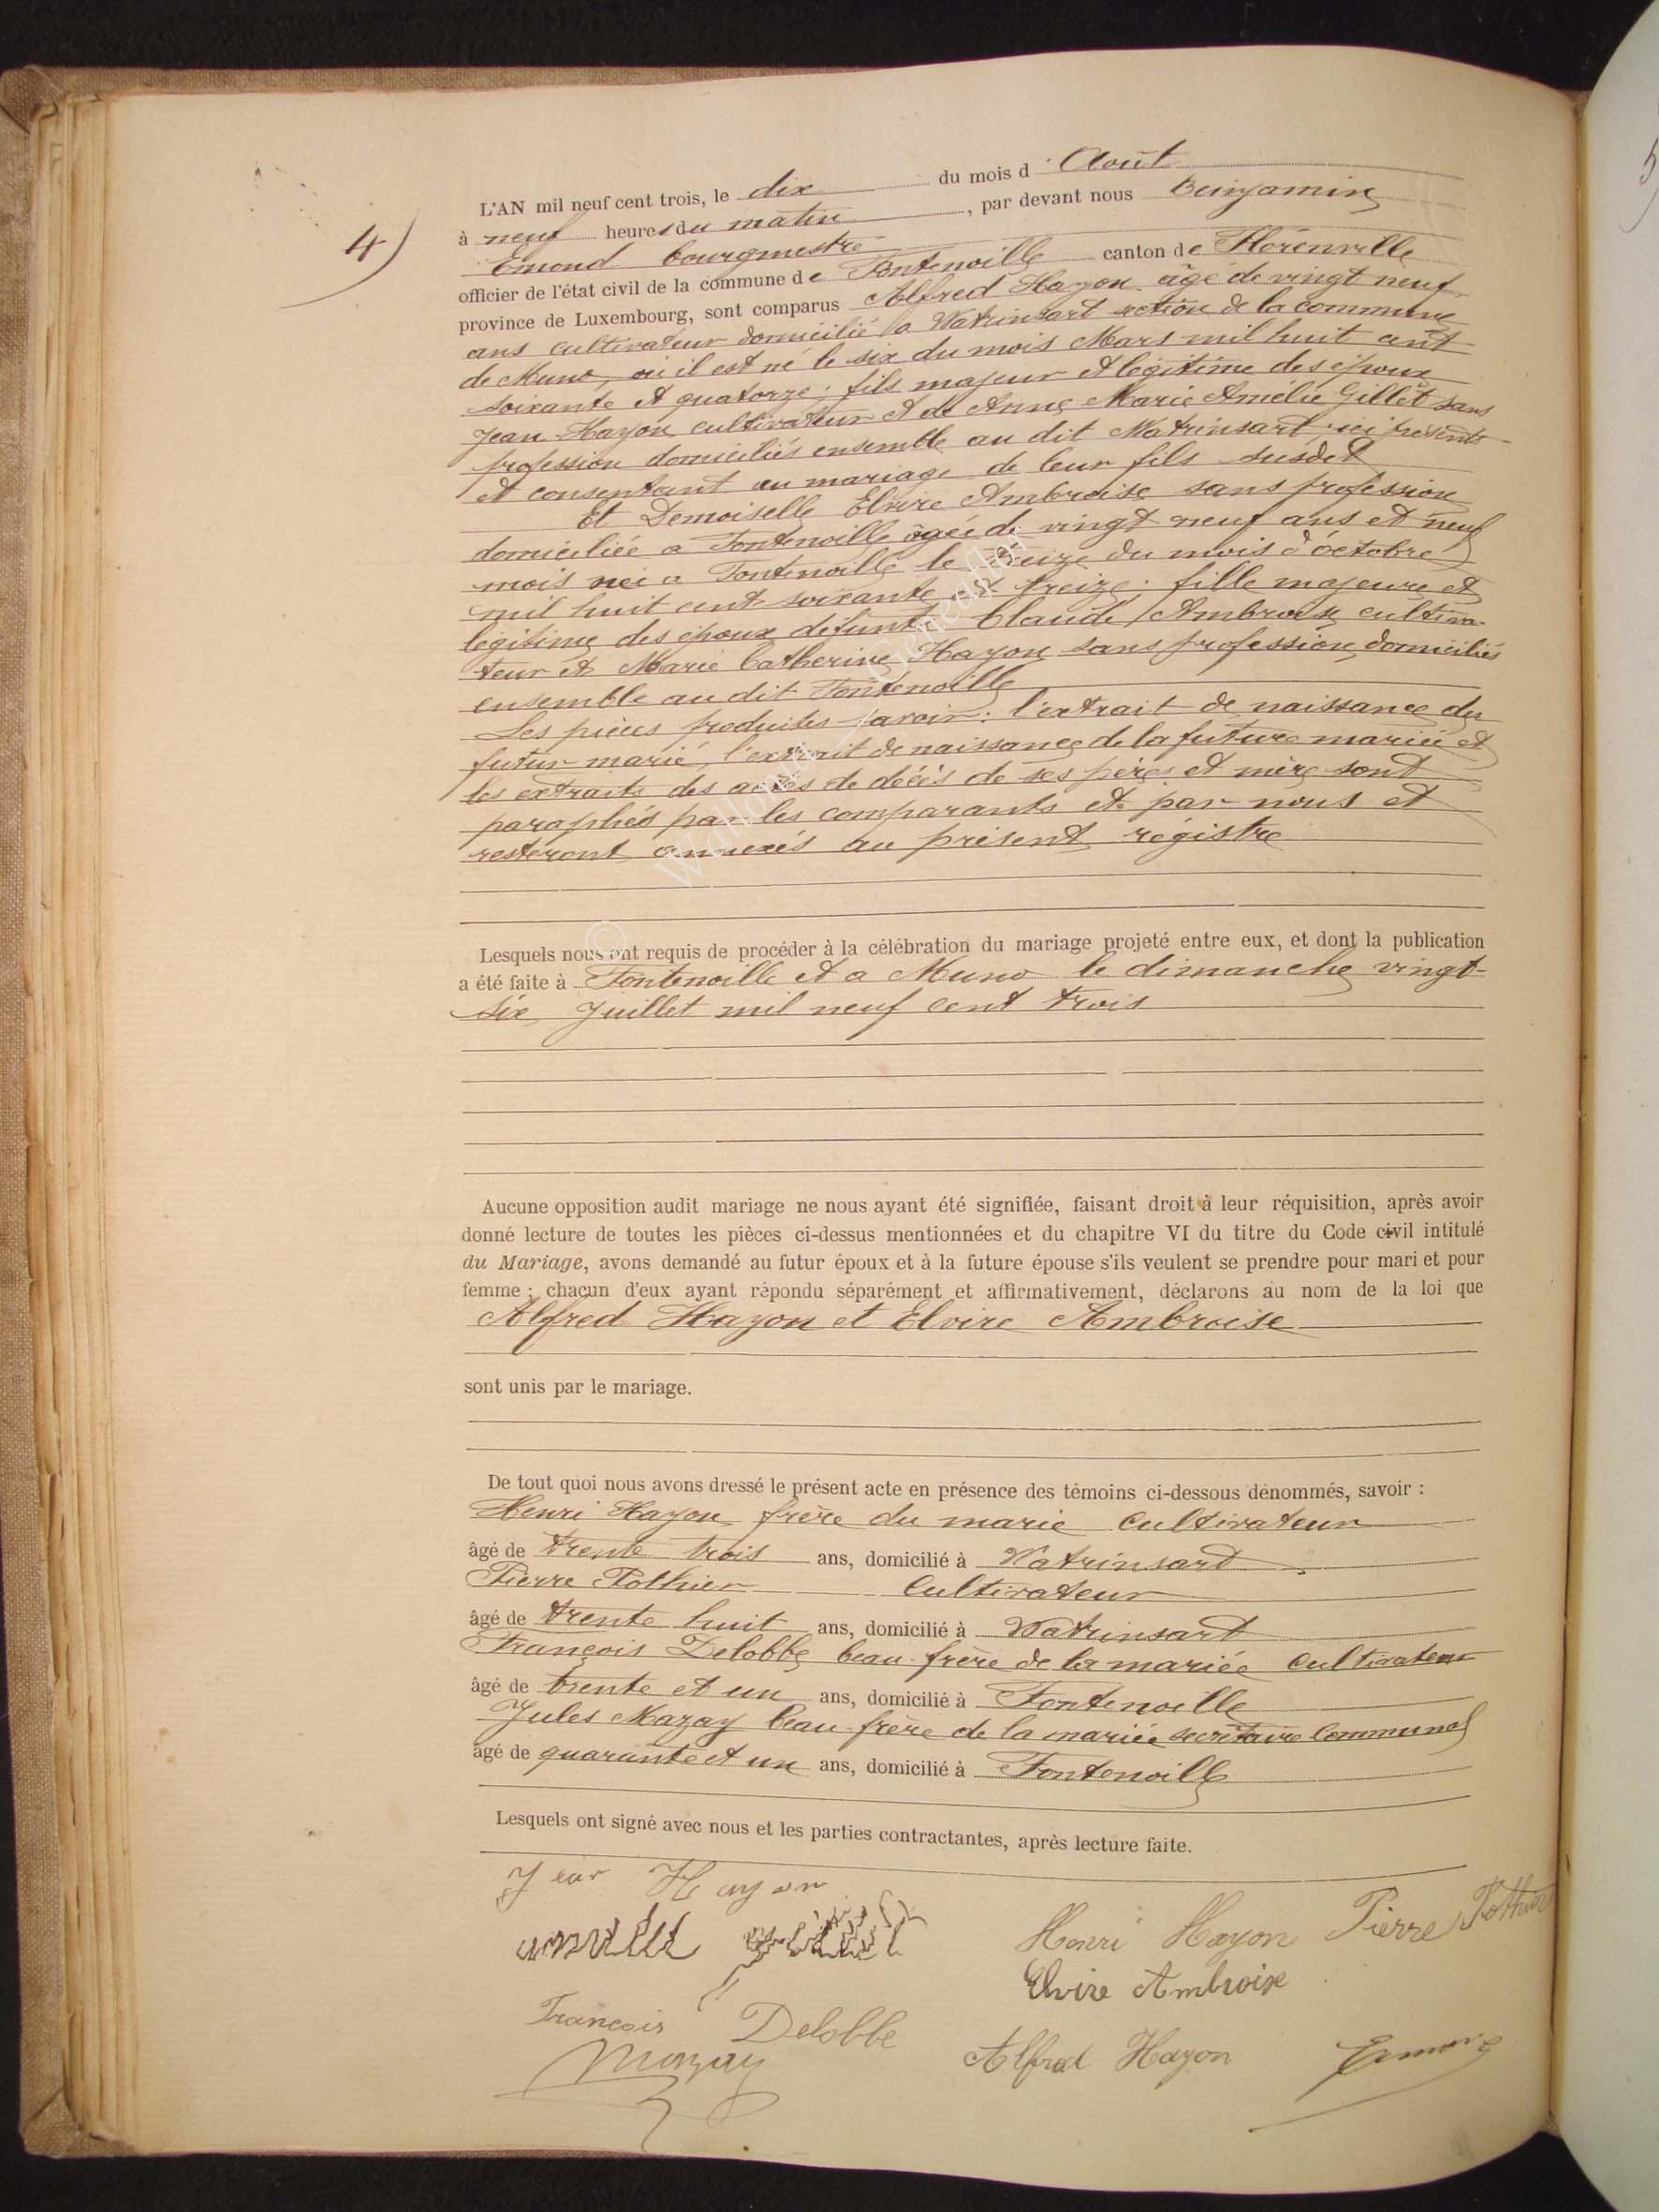 4)
L'AN mil neuf cent trois, le dix du mois d'Août
à neuf heures du matin, par devant nous Benjamin
Emond bourgmestre
officier de l'état civil de la commune de Fontenoille canton de Florenville
province de Luxembourg, sont comparus Alfred Hayon âgé de vingt neuf
ans cultivateur domicilié a Watrinsart section de la commune
de Muno, où il est né le six du mois Mars mil huit cent
soixante et quatorze; fils majeur et légitime des époux
Jean Hayon cultivateur et de Anne Marie Amélie Gillet sans
profession domiciliés ensemble au dit Watrinsart ici présents
et consentant au mariage de leur fils susdit
Et Demoiselle Elvire Ambroise sans profession
domiciliée a Fontenoille âgée de vingt neuf ans et neuf
mois née a Fontenoille le du mois d'Octobre
mil huit cent soixante et treize; fille majeure et
légitime des époux défunts Claude Ambroise cultiva-
teur et Marie Catherine Hayon sans profession domiciliés
ensemble au dit Fontenoille
Les pièces produites savoir: l'extrait de naissance du
futur marié, l'extrait de naissance de la future mariée et
les extraits des actes de décès de ses père et mère sont
paraphés par les comparants et par nous et
resteront annexés au présent régistre
Lesquels nous ont requis de procéder à la célébration du mariage projeté entre eux, et dont la publication
a été faite à Fontenoille et a Muno le dimanche vingt-
six Juillet mil neuf cent trois
Aucune opposition audit mariage ne nous ayant été signifiée, faisant droit à leur réquisition, après avoir
donné lecture de toutes les pièces ci-dessus mentionnées et du chapitre VI du titre du Code civil intitulé
du Mariage, avons demandé au futur époux et à la future épouse s'ils veulent se prendre pour mari et pour
femme; chacun d'eux ayant répondu séparément et affirmativement, déclarons au nom de la loi que
Alfred Hayon et Elvire Ambroise
sont unis par le mariage.
De tout quoi nous avons dressé le présent acte en présence des témoins ci-dessous dénommés, savoir :
Henri Hayon frère du marie Cultivateur
âgé de trente trois ans, domicilié à Watrinsart
Pierre Pothier Cultivateur
âgé de trente huit ans, domicilié à Watrinsart
François Delobbe beau-frère de la mariée Cultivateur
âgé de trente et un ans, domicilié à Fontenoille
Jules Mazay beau-frère de la mariée secrétaire Communal
âgé de quarante et un ans, domicilié à Fontenoille
Lesquels ont signé avec nous et les parties contractantes, après lecture faite.
Jean Hayon
Henri Hayon Pierre Pothier
Elvire Ambroise
François Delobbe
Mazay
Alfred Hayon Emond